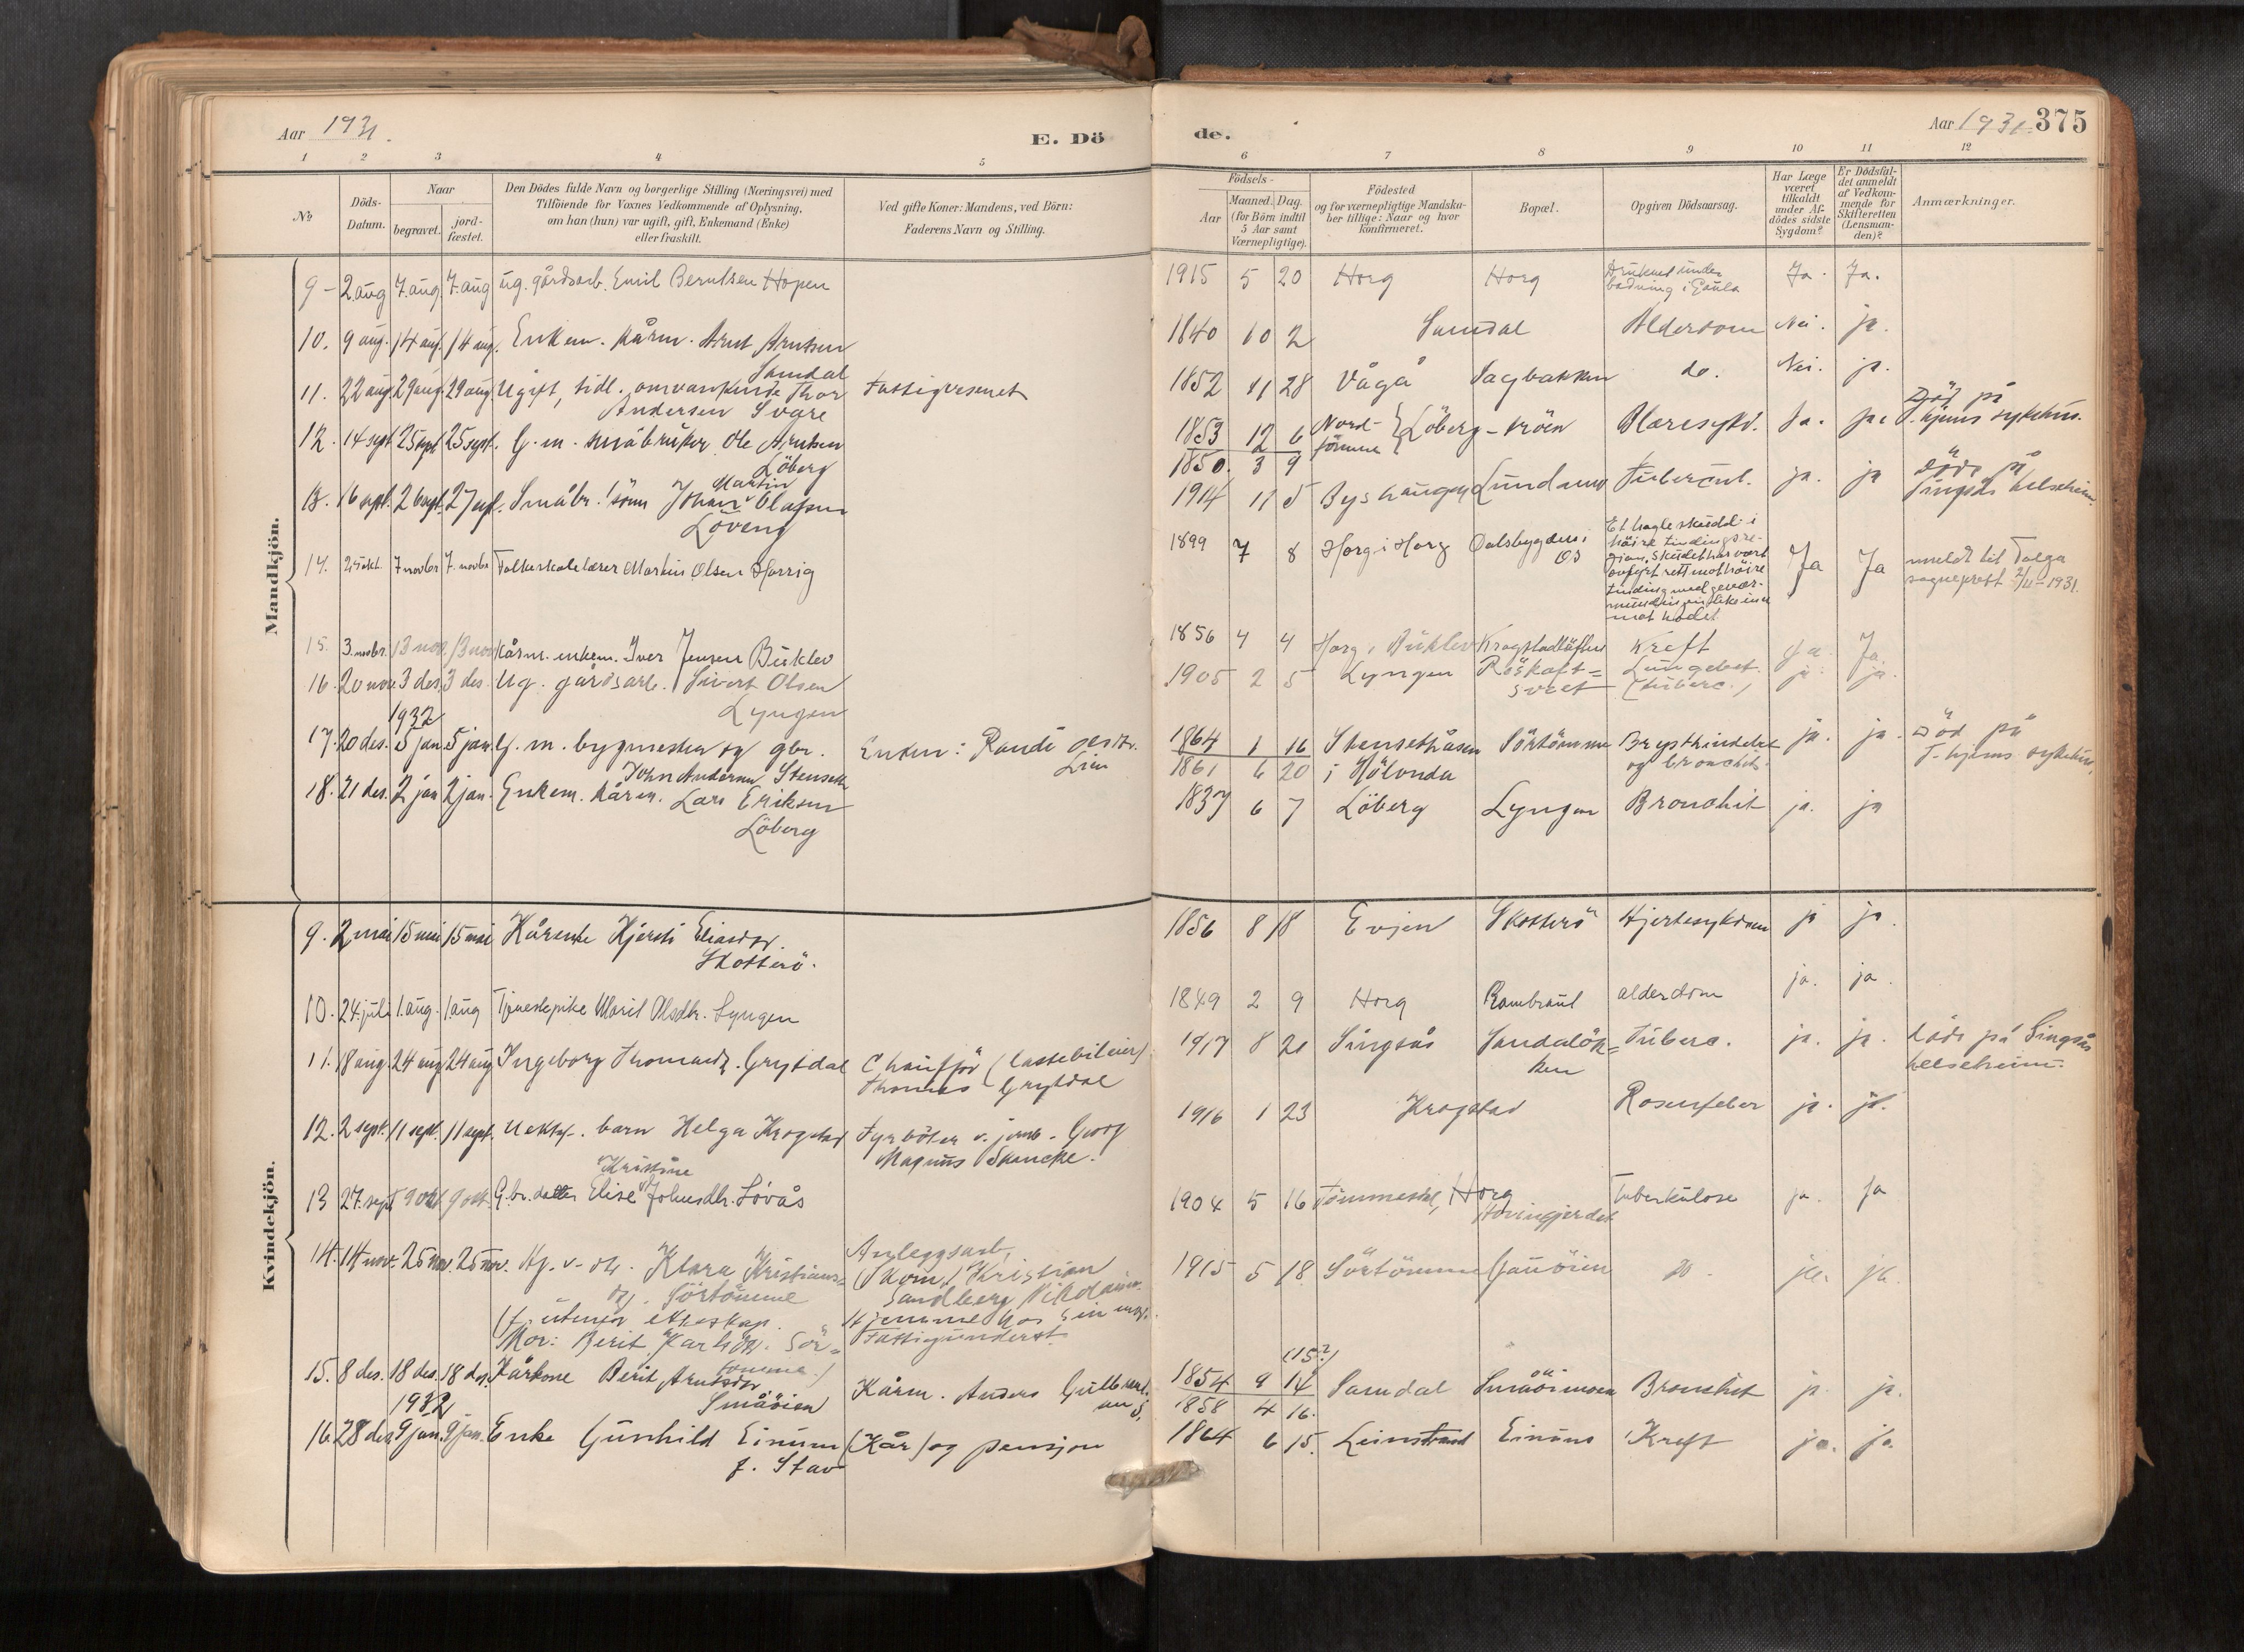 Aar 1931.
E. Döde.
Aar 1931. 375
1 2 3 4 5 6 7 8 9 10 11 12
№
Döds-Datum.
Naar
begravet.
jord-fæstet.
Den Dödes fulde Navn og borgerlige Stilling (Næringsvei) med
Tilföiende for Voxnes Vedkommende af Oplysning,
om han (hun) var ugift, gift, Enkemand (Enke)
eller fraskilt.
Ved gifte Koner: Mandens, ved Börn:
Faderens Navn og Stilling.
Födsels-
Aar
Maaned. Dag.
(for Börn indtil
5 Aar samt
Værnepligtige).
Födested
og for værnepligtige Mandsku-
ber tillige: Naar og hvor
konfirmeret.
Bopæl.
Opgiven Dödsaarsag.
Har Læge
været
tilkaldt
under Af-
dödes sidste
Sygdom?
Er Dödsfal-
det anmeldt
af Vedkom-
mende for
Skifteretten
(Lensman-
den)?
Anmærkninger.
Mandkjön.
9 - 2 aug 7. aug. 7. aug ug. gårdsarb. Emil Berntsen Hopen 1915 5 20 Horg Horg Druknet under Ja. Ja.
badning i Gaula
10. 9 aug. 14 aug. 14 aug. Enkem. kårm. Arnt Arntsen 1840 10 2 Samdal Alderdom Nei. ja.
Samdal
11. 22 aug. 29 aug. 29 aug. Ugift, tidl. omvankende Thor Fattigvesenet 1852 11 28 Vågå Sagbakken do. Nei. ja.
Andersen Svare
12. 14 sept. 25 sept. 25 sept. G. m. småbruker Ole Arntsen 1853 12 6 Nord- Löberg-tröen Blæresykd. Ja. ja. Död på
Löberg 1850. 3 9 tömme T.hjems sykehus.
13. 16 sept. 26 sept. 27 sept. Småbr.! sönn Johan Martin Olafsen 1914 11 5 Byshaugen Lundemo Tubercul. ja. ja döde på
Löveng Singsås helseheim.
14. 25 okt. 7 novbr 7. novbr Folkeskolelærer Martin Olsen Horrig 1899 7 8 Horg i Horg Dalsbygden i Et hagleskudd i Ja Ja meldt til Tolga
Os höire tindingsre-
gion, Skudet har vært sogneprest 2/11-1931.
avfyrt rett mot höire
tinding med gevær-
mundingen like inn
mot hodet
15. 3. novbr. 13 nov. 13 nov Kårm. enkem. Iver Jensen Buklev 1856 4 4 Horg i Buklev Krogstadtäften Kreft Ja. Ja.
16. 20 nov. 3 des. 3 des. Ug. gårdsarb. Sivert Olsen 1905 2 5 Lyngen Röskaft= Lungebet. ja. ja.
Lyngen sveet (tuberc.)
1932
17. 20 des. 5 jan 5 jan. G. m. bygmester og gbr. Enken: Randi 1864 1 16 Stensethåsen Sörtömme Brysthindebet ja. ja. Död på
John Andersen Stenseth Lien 1861 6 20 i Hölonda og bronchit. T-hjems sykehus.
18. 21 des. 2 jan 2 jan. Enkem. kårm. Lars Eriksen 1837 6 7 Löberg Lyngen Bronchit ja. ja
Löberg
Kvindekjön.
9. 2 mai 15 mai 15 mai Kårenke Kjersti Eliasdtr. 1856 8 18 Evjen Skotterö Hjertesykdom ja ja.
Skotterö.
10. 24. juli 1. aug. 1. aug Tjenestepike Marit Olsdtr. Lyngen 1849 2 9 Horg Rambraut alderdom ja. ja.
11. 18 aug. 24 aug 24 aug Ingeborg Thomasd. Grytdal Chaufför (lastebileier) 1917 8 21 Singsås Sandalök= Tuberc. ja. ja. döde på Singsås
Thomas Grytdal ken helseheim.
12. 2 sept. 11 sept. 11 sept. Uektef. barn Helga Krogstad Fyrböter v. jernb. Georg 1916 1 23 Krogstad Rosenfeber ja. ja.
Magnus Skancke.
13 27. sept 9 okt. 9 okt. G.br. datter Elise Kristine Johnsdtr. Lövås 1904 5 16 Tömmesdal, Horg Tuberkulose ja. Ja
Hovingjerdet
14. 14 nov. 25 nov. 25 nov. Hj. v. dtr. Klara Kristians= Anleggsarb. 1915 5 18. Sörtömme Gauöien do. ja. ja.
dtr. Sörtömme (Skom.) Kristian
(f. utenfor ekteskap. Sandberg
Mor: Berit Karlsdtr. Sör= Hjemme hos sin mor.
tömme.) Fattigunderst.
15. 8 des. 18 des. 18 des. Kårkone Berit Arntsdtr Kårm. Anders Gulbrand= 1854 9 14 (15?) Samdal Småöimoen Bronchit ja. ja.
Småöien sen S. 1858 4 16.
1932
16. 28 des. 9 jan. 9 jan. Enke Gunhild Einum (Kår) og pensjon 1864 6 15. Leinstrand Einum Kreft ja. ja.
f. Stav